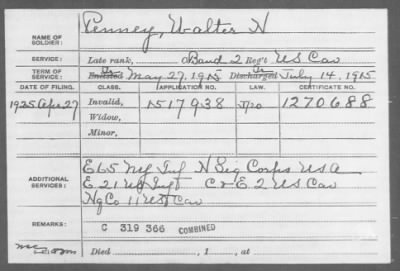 NAME OF SOLDIER: Penney, Walter N
SERVICE: Late rank, Band 2 Reg't US Cav
TERM OF SERVICE: Enlisted May 27, 1915 Discharged July 14, 1915
DATE OF FILING. CLASS. APPLICATION NO. LAW. CERTIFICATE NO.
1925 Apr 27 Invalid, 1517938 1270688
Widow,
Minor,
E 65 Inf N Sig Corps USA
ADDITIONAL SERVICES: E. 21 US Inf C & E. 2 US Cav
Hq Co 11 US Cav
REMARKS: C 319 366 COMBINED
Died , 1 , at